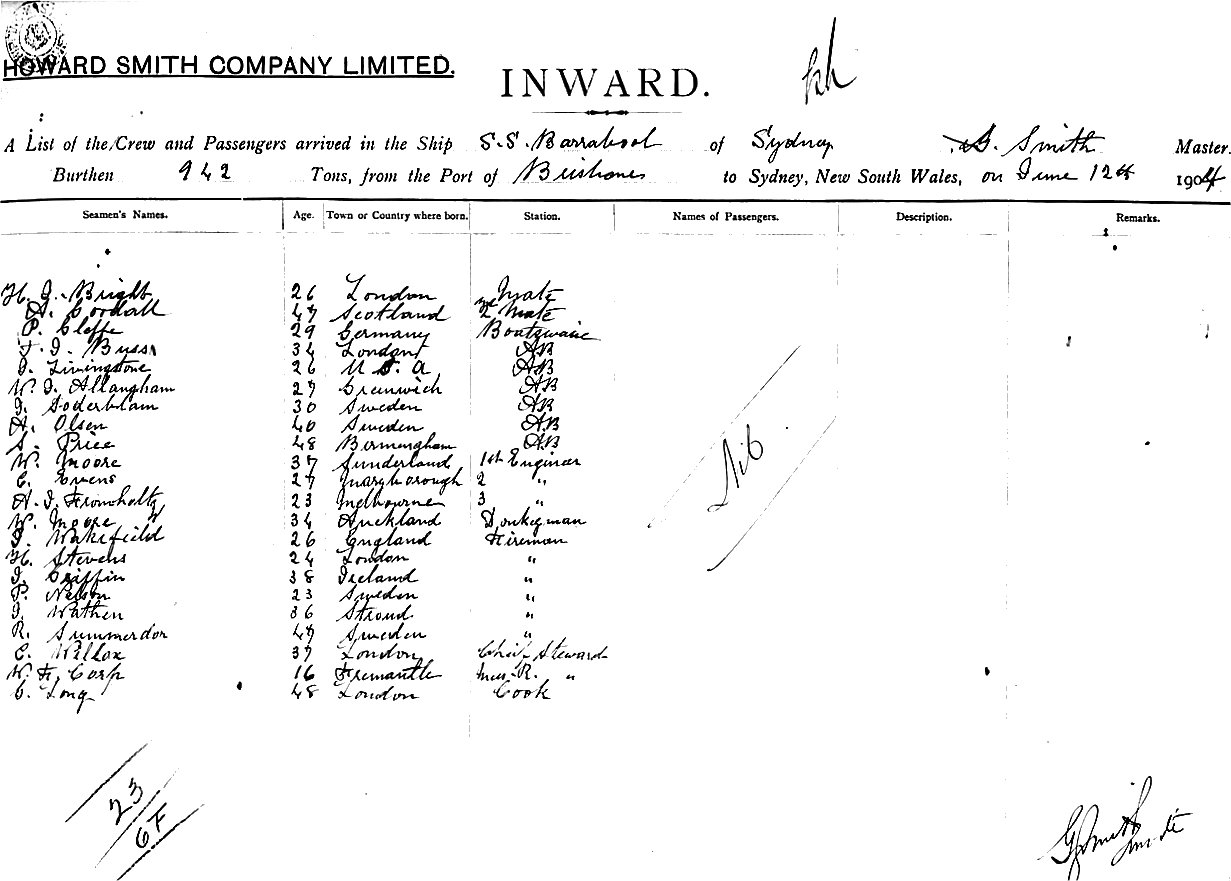 HOWARD SMITH COMPANY LIMITED.
INWARD.
A List of the Crew and Passengers arrived in the Ship S.S. Barrabool of Sydney, G. Smith Master.
Burthen 942 Tons, from the Port of Brisbane to Sydney, New South Wales, on June 12th 1904
Seamen's Names. Age. Town or Country where born. Station. Names of Passengers. Description. Remarks.
H. J. Bright 26 London Mate
A. Goodall 47 Scotland 2nd Mate
P. Cleffe 29 Germany Boatswain
34 London AB
J. Livingstone 26 U S. A AB
W. J. Allangham 27 Greenwich AB
J. Soderblam 30 Sweden AB
A. Olsen 40 Sweden AB
S. Price 48 Birmingham AB
W. Moore 37 Sunderland 1st Engineer
E. Evens 27 Maryborough 2 "
A. J. Fromholtz 23 Melbourne 3 "
W. Moore 34 Auckland Donkeyman
J. Wakefield 26 England Fireman
H. Stevens 24 London "
J. Griffin 38 Ireland "
P. Nelson 23 Sweden "
J. Wathen 36 Stroud "
R. Summerdor 47 Sweden "
C. Willox 37 London Chief Steward
W. F. Corp 16 Fremantle Mess-R. "
C. Long 48 London Cook
Nil
23/6F
G Smith